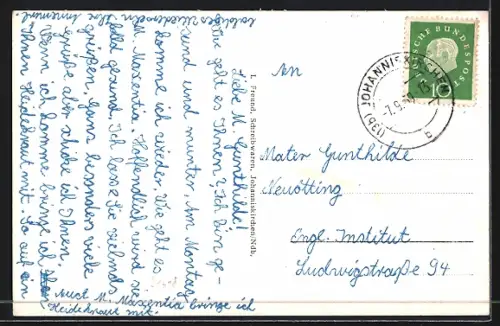 Liebe M. Gunthilde!
Wie geht es Ihnen? Ich bin ge-
sund und munter. Am Montag
komme ich wieder. Wie geht es
M. Maxentia. Hoffendlich wird sie
bald gesund. Ich lasse Sie vielmals
grüßen. Ganz besonders viele
Grüße aber schicke ich Ihnen.
Wenn ich komme bringe ich
Ihnen Heidekraut mit. So auf ein
baldiges Wiedersehn Ihre
Auch M. Maxentia bringe ich
Heidekraut mit.
L. Freund, Schreibwaren, Johanniskirchen/Ndb.
DEUTSCHE BUNDESPOST
10
(13b) JOHANNISKIRCHEN
a
An
Mater Gunthilde
Neuötting
Engl. Institut
Ludwigstraße 94